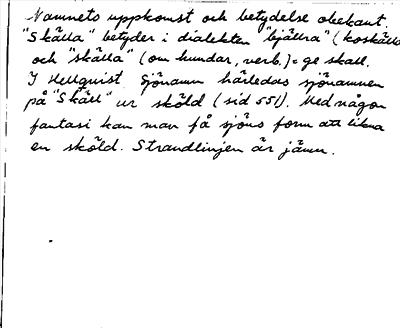 Namnets uppkomst och betydelse obekant.
"Skälla" betyder i dialekten "bjällra" (koskälla
och "skälla" (om hundar, verb.) = ge skall.
I Hellquist. Sjönamn härledas sjönamnen
på "Skäll" ur sköld (sid 551). Med någon
fantasi kan man få sjöns form att likna
en sköld. Strandlinjen är jämn.